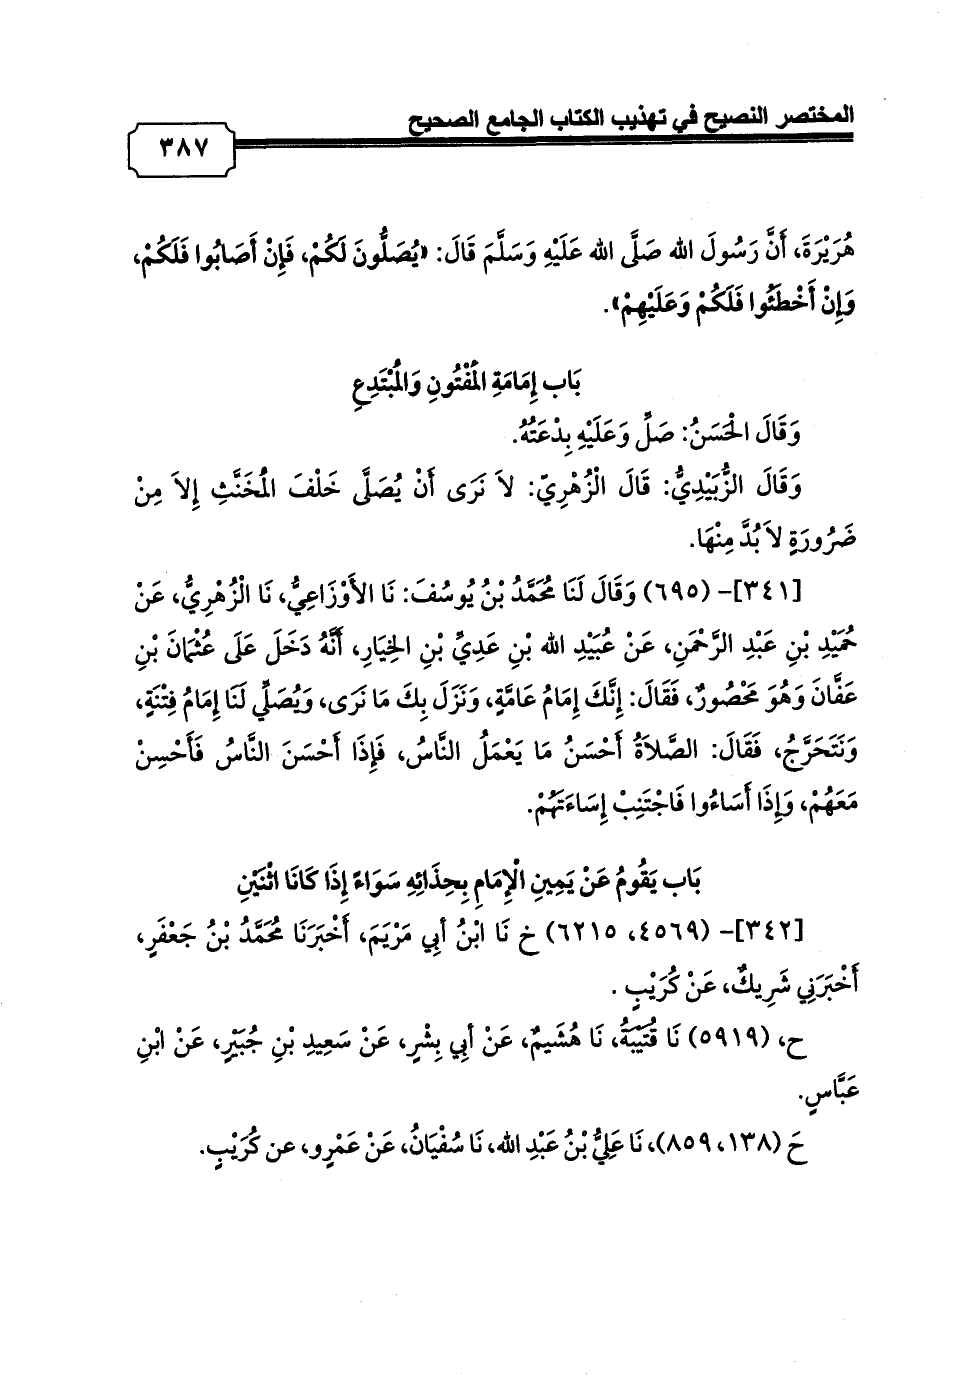 المختصر النصيح في تهذيب الكتاب الجامع الصحيح
٣٨٧
هُرَيْرَةَ، أَنَّ رَسُولَ الله صَلَّى الله عَلَيْهِ وَسَلَّمَ قَالَ: «يُصَلُّونَ لَكُمْ، فَإِنْ أَصَابُوا فَلَكُمْ،
وَإِنْ أَخْطَئُوا فَلَكُمْ وَعَلَيْهِمْ».
بَاب إِمَامَةِ المَفْتُونِ وَالمُبْتَدِعِ
وَقَالَ الحَسَنُ: صَلِّ وَعَلَيْهِ بِدْعَتُهُ.
وَقَالَ الزُّبَيْدِيُّ: قَالَ الْزُهْرِيّ: لاَ نَرَى أَنْ يُصَلَّى خَلْفَ المُخَنَّثِ إِلاَ مِنْ
ضَرُورَةٍ لاَ بُدَّ مِنْهَا.
[٣٤١]- (٦٩٥) وَقَالَ لَنَا مُحَمَّدُ بْنُ يُوسُفَ: نَا الأَوْزَاعِيُّ، نَا الْزُهْرِيُّ، عَنْ
حُمَيْدِ بْنِ عَبْدِ الرَّحْمَنِ، عَنْ عُبَيْدِ الله بْنِ عَدِيِّ بْنِ الخِيَارِ، أَنَّهُ دَخَلَ عَلَى عُثْمَانَ بْنِ
عَفَّانَ وَهُوَ مَحْصُورٌ، فَقَالَ: إِنَّكَ إِمَامُ عَامَّةٍ، وَنَزَلَ بِكَ مَا نَرَى، وَيُصَلِّي لَنَا إِمَامُ فِتْنَةٍ،
وَنَتَحَرَّجُ، فَقَالَ: الصَّلاَةُ أَحْسَنُ مَا يَعْمَلُ النَّاسُ، فَإِذَا أَحْسَنَ النَّاسُ فَأَحْسِنْ
مَعَهُمْ، وَإِذَا أَسَاءُوا فَاجْتَنِبْ إِسَاءَتَهُمْ.
بَاب يَقُومُ عَنْ يَمِينِ الْإِمَامِ بِحِذَائِهِ سَوَاءً إِذَا كَانَا اثْنَيْنِ
[٣٤٢]- (٤٥٦٩، ٦٢١٥) خ نَا ابْنُ أَبِي مَرْيَمَ، أَخْبَرَنَا مُحَمَّدُ بْنُ جَعْفَرٍ،
أَخْبَرَنِي شَرِيكٌ، عَنْ كُرَيْبٍ .
ح، (٥٩١٩) نَا قُتَيْبَةُ، نَا هُشَيمٌ، عَنْ أَبِي بِشْرٍ، عَنْ سَعِيدِ بْنِ جُبَيْرٍ، عَنْ ابْنِ
عَبَّاسٍ.
حَ (١٣٨، ٨٥٩)، نَا عَلِيُّ بْنُ عَبْدِ الله، نَا سُفْيَانُ، عَنْ عَمْرٍو، عن كُرَيْبٍ.